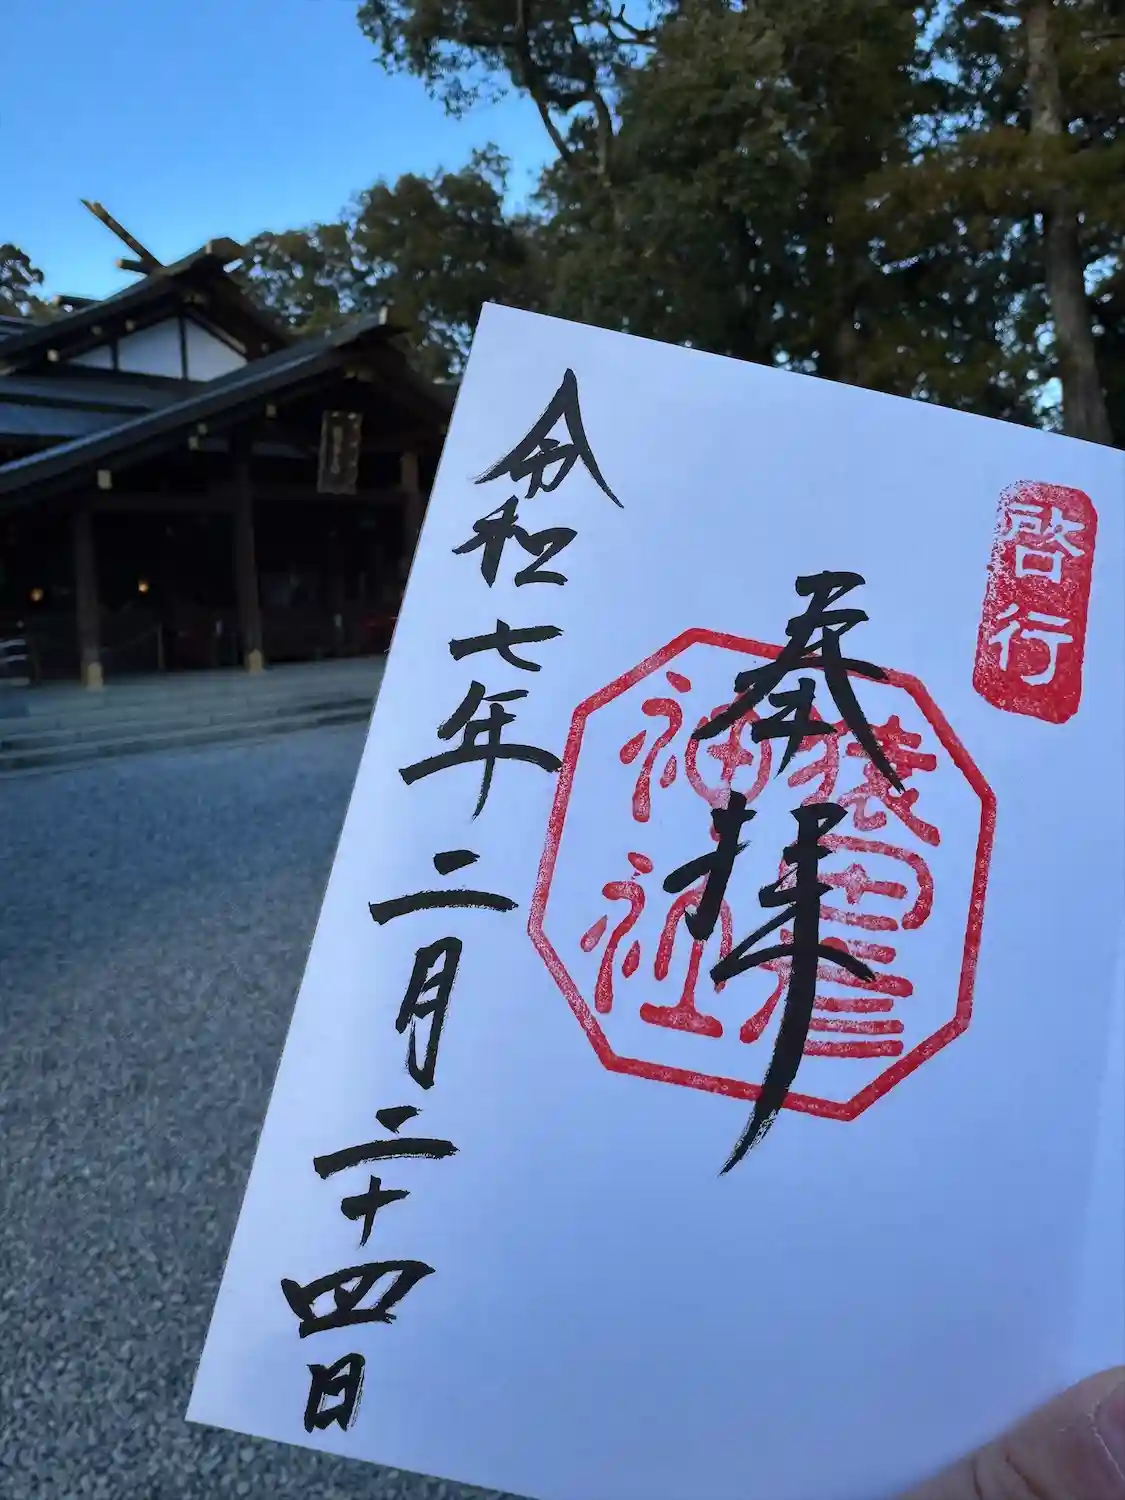 啓行
奉拝
猿田彦
神社
令和七年二月二十四日